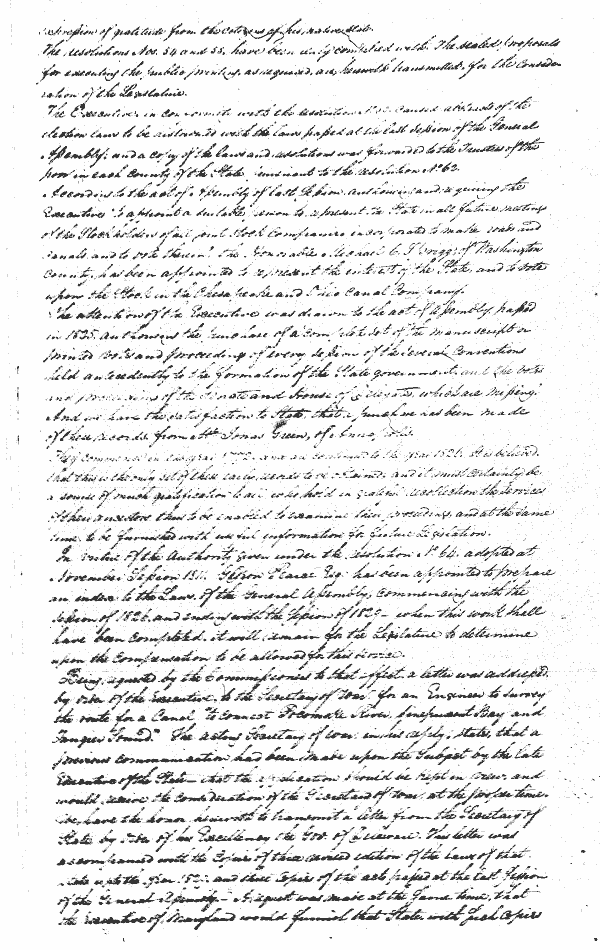 expression of gratitude from the citizens of his native state.
The resolutions Nos. 54 and 55, have been duly complied with. The sealed proposals
for executing the public printing, as required, are herewith transmitted, for the consider
ration of the Legislature.
The Executive, in conformity with the resolution No. caused abstracts of the
election laws to be distributed with the laws passed at the last session of the General
Assembly; and a copy of the laws and resolutions was forwarded to the Trustees of the
poor in each County of the State, pursuant to the resolution No 62.
According to the act of Assembly of last Session, authorizing and requiring the
Executive to appoint a suitable person to represent the State in all future meetings
of the Stockholders of all joint Stock Companies incorporated to make roads and
canals, and to vote therein, the Honorable Michael C. Sprigg of Washington
County, has been appointed to represent the interest of the State, and to vote
upon the Stock in the Chesapeake and Ohio Canal Company.
The attention of the Executive was drawn to the act of Assembly, passed
in 1825, authorising the purchase of a complete set of the manuscript or
printed votes and proceedings of every session of the several Conventions
held antecedently to the formation of the State government, and the votes
and proceedings of the Senate and House of Delegates, which are missing.
And we have the satisfaction to State, that a purchase has been made
of these records, from Mr. Jonas Green, of Annapolis.
They commence in the year 177 and are continued to the year 182 It is believed,
that this is the only set of these early records to be obtained, and it must certainly be
a source of much gratification to all who hold in grateful recollection the services
of their ancestors thus to be enabled to examine their proceedings, and at the same
time, to be furnished with useful information for future Legislation.
In virtue of the Authority given under the resolution No 64, adopted at
November Session 181 Gideon Pearce Esqr has been appointed to prepare
an index to the Laws, of the General Assembly, commencing with the
session of 1826, and ending with the Session of 182 when this work shall
have been completed, it will remain for the Legislature to determine
upon the Compensation to be allowed for this service.
Being requested by the Commissioners to that effect, a letter was addressed,
by order of the Executive, to the Secretary of War, for an Engineer to survey
the route for a Canal "to connect Pocomoke River, Sinepuxent Bay and
Tangier Sound." The acting Secretary of War in his reply, states, that a
previous communication had been made upon the Subject by the late
Executive of the State that the application should be kept in view, and
would receive the consideration of the Secretary of War, at the proper time.
We have the honor, herewith to transmit a letter from the Secretary of
State by order of his Excellency the Gov. of Delaware. This letter was
accompanied with the Copies of three revised edition of the Laws of that
State up to the year 182 and three copies of the acts passed at the last Session
of the General Assembly. A request was made at the same time, that
the Executive of Maryland would furnish that State, with such copies